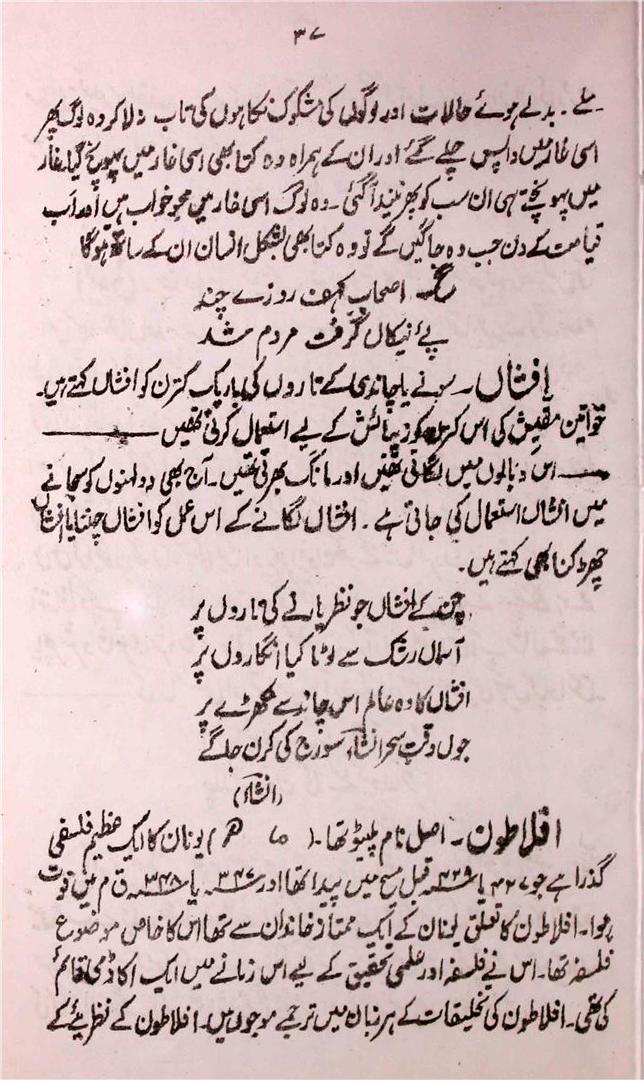 ۳۷
ملے۔ بدلے ہوئے حالات اور لوگوں کی مشکوک نگاہوں کی تاب نہ لا کر وہ لوگ پھر
اسی غار میں واپس چلے گئے اور ان کے ہمراہ وہ کتا بھی اسی غار میں پہونچ گیا۔ غار
میں پہونچتے ہی ان سب کو پھر نیند آ گئی۔ وہ لوگ اسی غار میں محو خواب ہیں اور اب
قیامت کے دن جب وہ جاگیں گے تو وہ کتا بھی بشکل انسان ان کے ساتھ ہوگا
سگ اصحاب کہف روزے چند
پئے نیکاں گرفت مردم شد
افشاں۔ سونے یا چاندی کے تاروں کی باریک کترن کو افشاں کہتے ہیں۔
خواتین مقیش کی اس کترن کو زیبائش کے لیے استعمال کرتی تھیں
اس دبالوں میں لگاتی تھیں اور مانگ بھرتی تھیں۔ آج بھی دولہنوں کو سجانے
میں افشاں استعمال کی جاتی ہے۔ افشاں لگانے کے اس عمل کو افشاں چننا یا افشاں
چھڑکنا بھی کہتے ہیں۔
چن کے افشاں جو نظر یار نے کی تاروں پر
آسماں رشک سے لوٹا کیا انگاروں پر
افشاں کا وہ عالم اس چاند سے مکھڑے پر
جوں وقتِ سحر انشاؔ سورج کی کرن جاگے
(انشاؔ)
افلاطون۔ اصل نام پلیٹو تھا۔ ( ) یونان کا ایک عظیم فلسفی
گذرا ہے جو ۴۲۷ یا ۴۲۹ قبل مسیح میں پیدا تھا اور ۳۴۷ یا ۳۴۸ ق م میں فوت
ہوا۔ افلاطون کا تعلق یونان کے ایک ممتاز خاندان سے تھا اس کا خاص موضوع
فلسفہ تھا۔ اس نے فلسفہ اور علمی تحقیق کے لیے اس زمانے میں ایک اکاڈمی قائم
کی تھی۔ افلاطون کی تخلیقات کے ہر زبان میں ترجمے موجود ہیں۔ افلاطون کے نظریئے کے